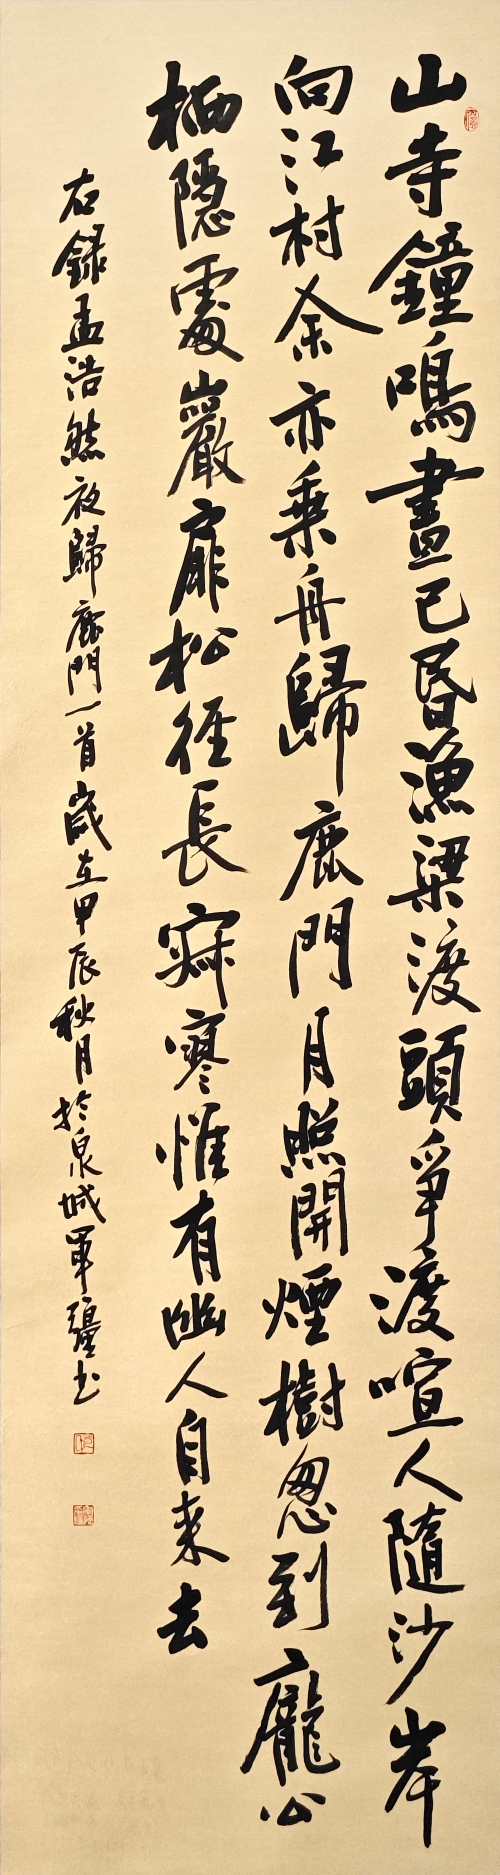 山寺鐘鳴晝已昏漁梁渡頭爭渡喧人隨沙岸
向江村余亦乘舟歸鹿門月照開煙樹忽到龐公
栖隱處巖扉松徑長寂寒惟有幽人自來去
右錄孟浩然夜歸鹿門一首歲在甲辰秋月於泉城軍疆书